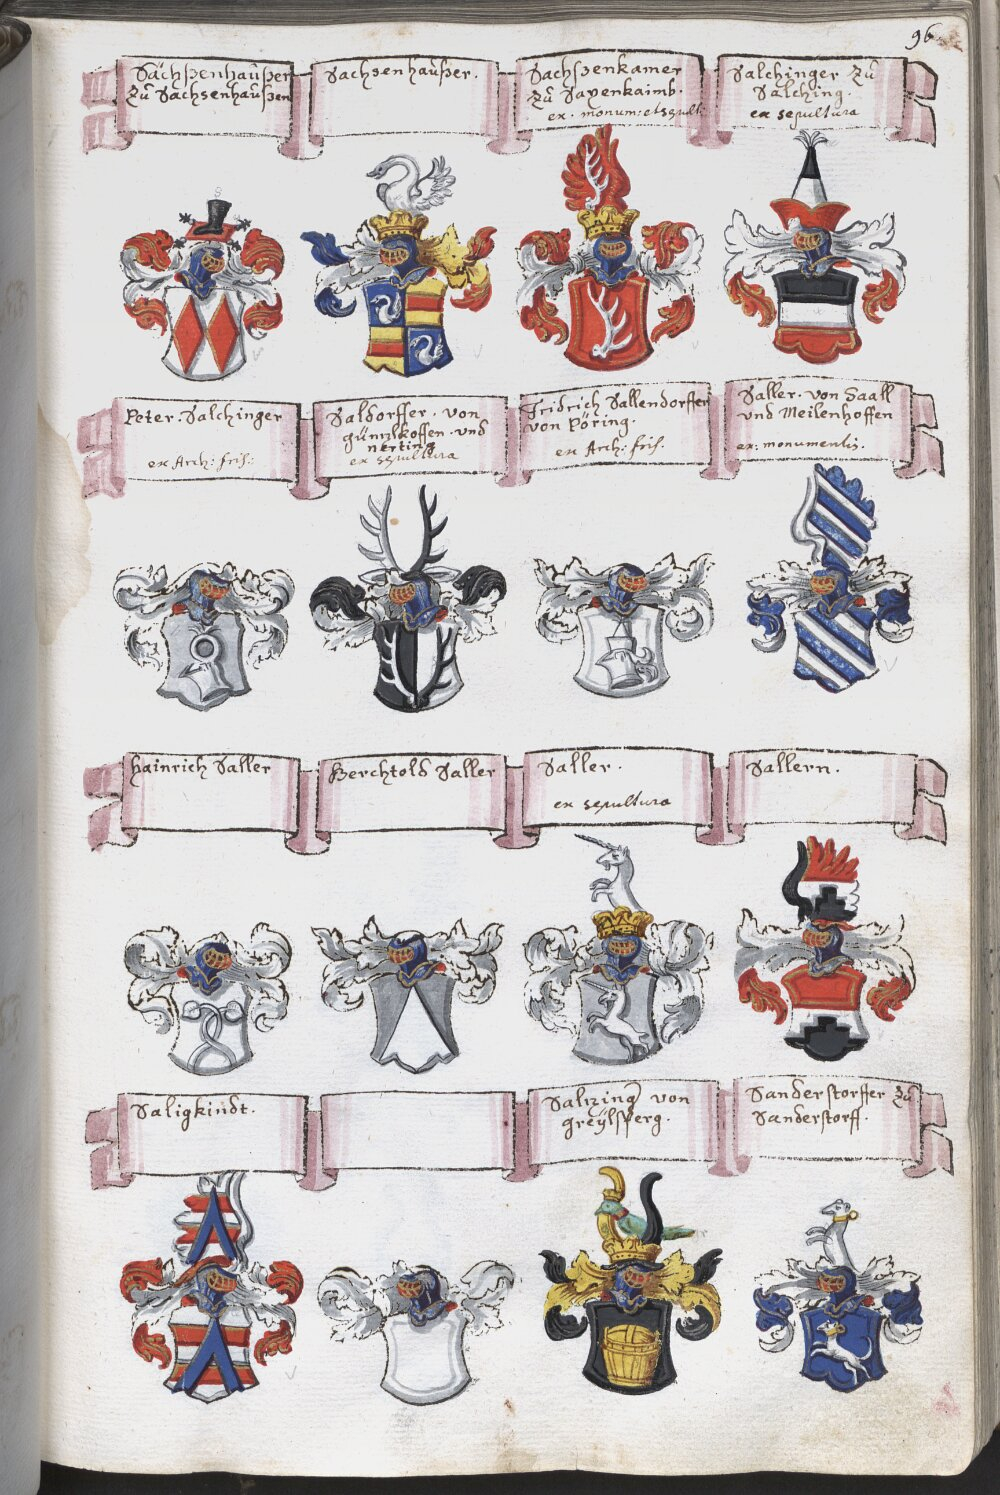 96
Sächsenhaüser
Zü Sachsenhaüsen
Sachsenhaüser.
Sachsenkamer
Zü Saxenkaimb.
ex. monum: et sepult:
Salchinger Zü
Salching.
ex sepultura
Peter. Salchinger
ex Arch: fris:
Saldorffer. von
günzlkoffen. und
nerting
ex sepultura
Fridrich Sallendorffer
von Pöring.
ex Arch: fris.
Saller. von Saall
und Meilenhoffen
ex. monumentis.
Hainrich Saller
Berchtold Saller
Saller.
ex sepultura
Sallern.
Saligkindt.
Salizing von
greÿlsperg.
Sanderstorffer Zü
Sanderstorff.